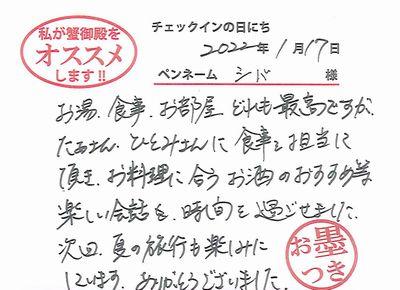 私が蟹御殿を
オススメ
します!!
チェックインの日にち
2022年1月17日
ペンネーム シド 様
お湯、食事、お部屋 どれも最高ですが、
たぁさん、ひとみさんに食事を担当に
頂き、お料理に合うお酒のおすすめ等
楽しい会話を、時間を過ごせました。
次回、夏の旅行も楽しみに
しています。ありがとうございました。
お墨
つき